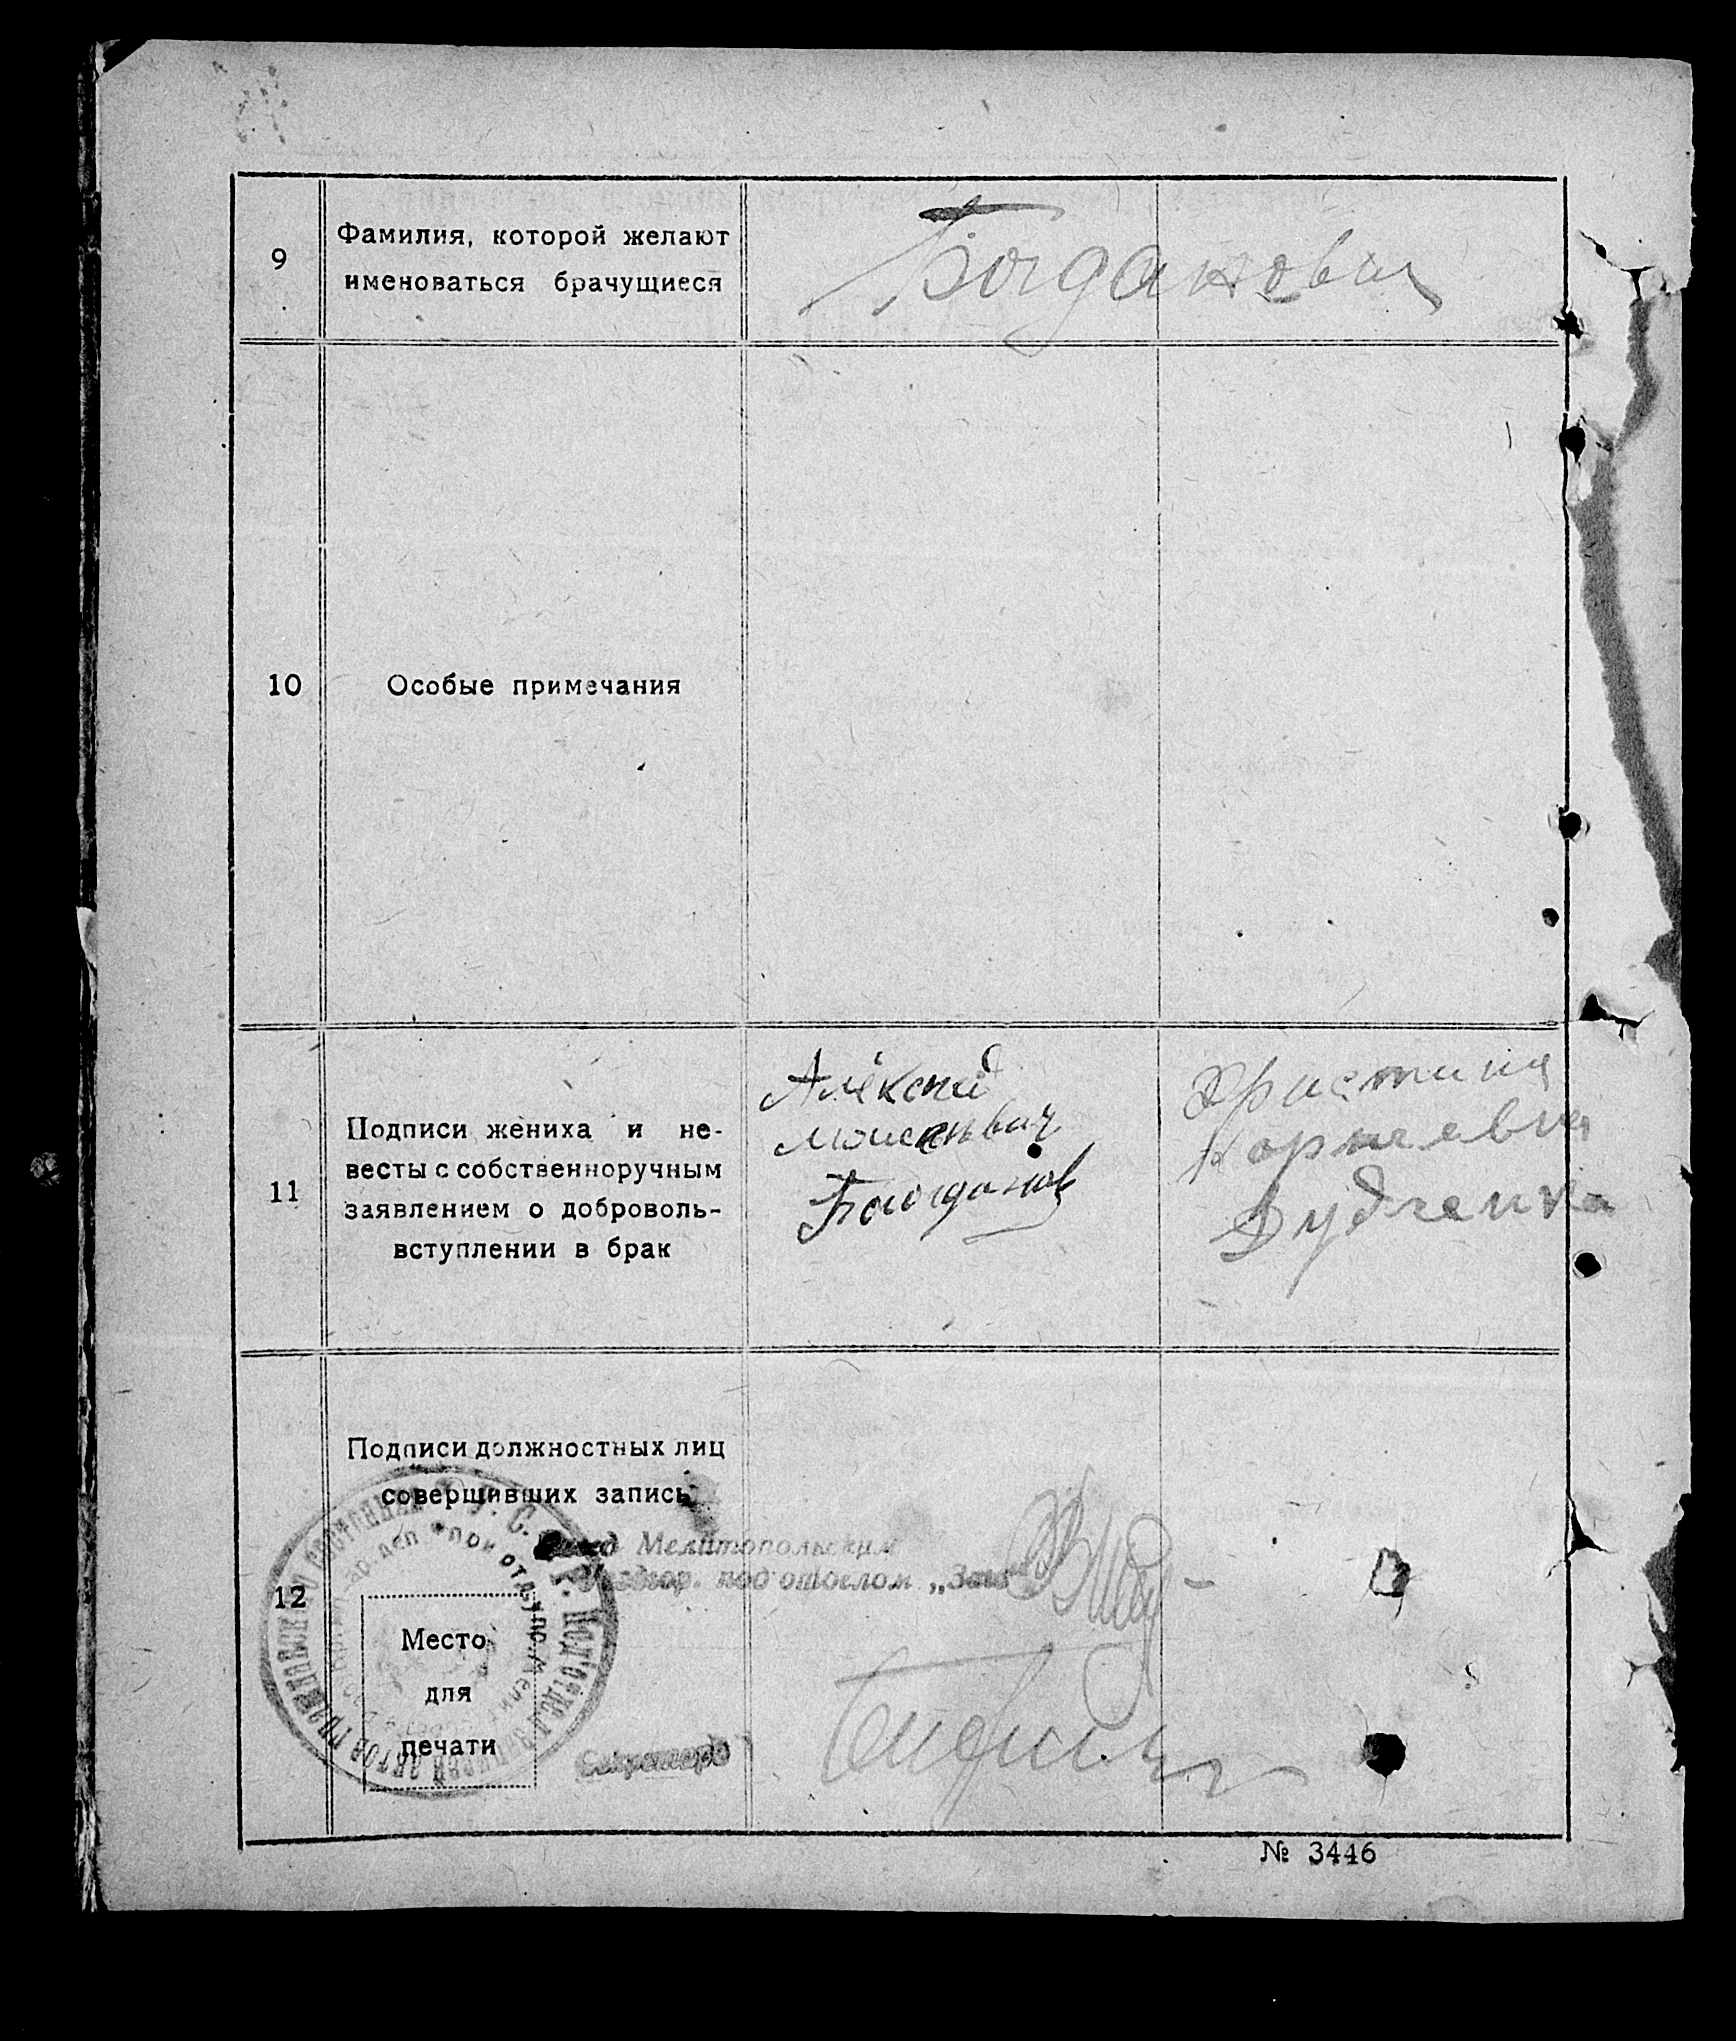 9
Фамилия, которой желают
именоваться брачущиеся
Богдановы
10
Особые примечания
11
Подписи жениха и не-
весты с собственноручным
заявлением о доброволь-
вступлении в брак
Алексей
Богданов
Христина
Корнеевна
Дудченка
12
Подписи должностных лиц
совершивших запись
Мелитопольским
подотделом „Загс"
Место
для
печати
Секретарь
№ 3446